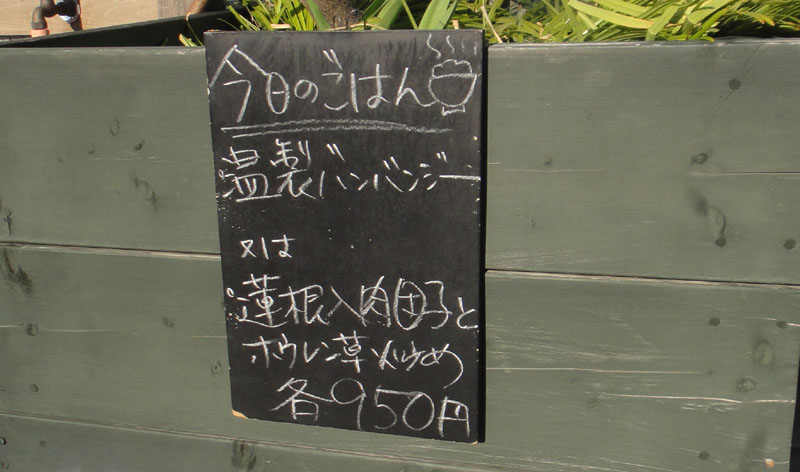 今日のごはん
温製バンバンジー
又は
蓮根入肉団子と
ホウレン草炒め
各950円